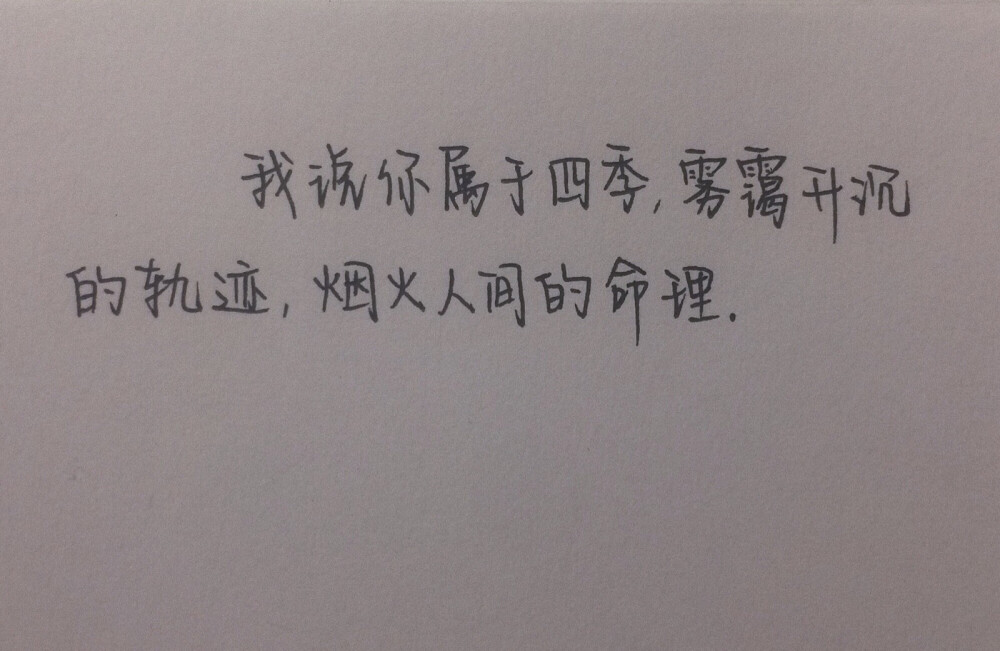 我说你属于四季,雾霭升沉
的轨迹,烟火人间的命理.